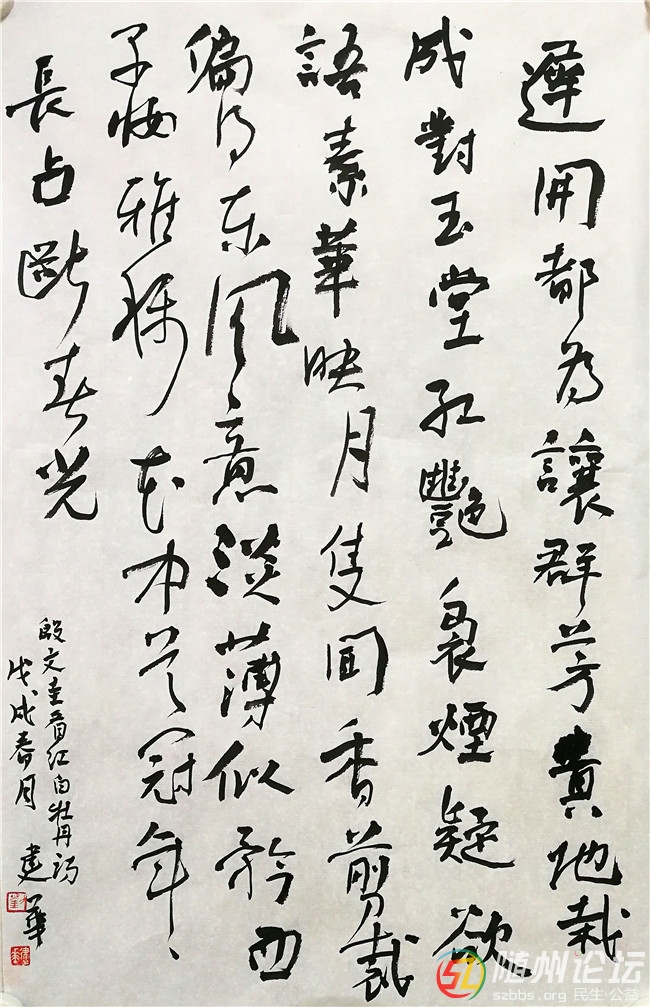 遲開都为讓群芳貴地栽
成對玉堂红艷裊煙疑欲
語素華映月隻聞香剪裁
偏得东風意淡薄似矜西
子妆雅称花中冠年々
長占斷春光
殷文圭看红白牡丹詩
戊戌春月 建華
随州论坛
szbbs.org 民生·公益